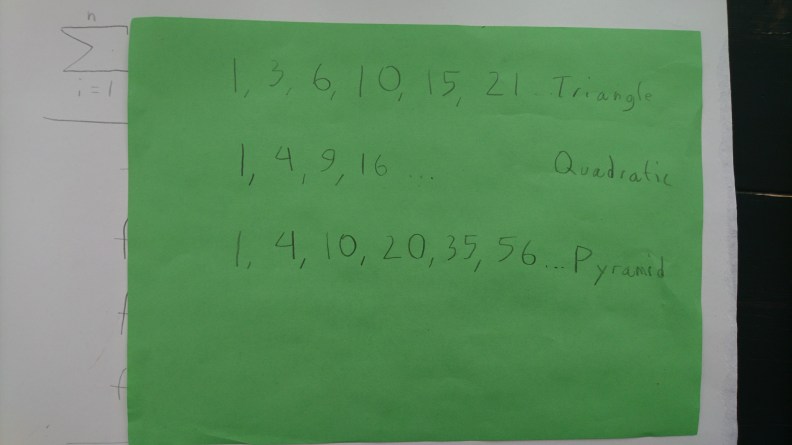 n
Σ
i=1
1, 3, 6, 10, 15, 21 .. Triangle
1, 4, 9, 16 ... Quadratic
1, 4, 10, 20, 35, 56... Pyramid
f
f
f